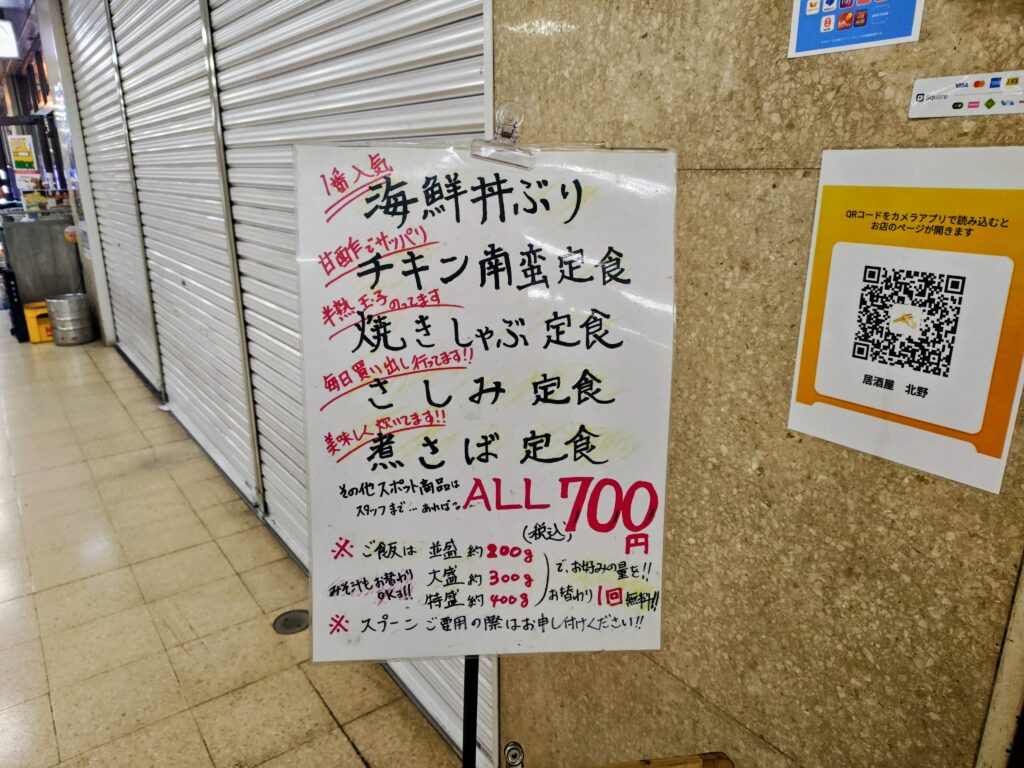 1番人気
海鮮丼ぶり
甘酢でサッパリ
チキン南蛮定食
半熟玉子のってます
焼きしゃぶ定食
毎日買い出し行ってます!!
さしみ定食
美味しく炊いてます!!
煮さば定食
その他スポット商品は
スタッフまで…あればね
ALL 700円
(税込)
※ ご飯は 並盛 約200g
大盛 約300g
特盛 約400g
で、お好みの量を!!
お替わり1回無料!!
みそ汁もお替わり
OKs!!
※ スプーンご要用の際はお申し付けください!!
Pay
Square
VISA
QRコードをカメラアプリで読み込むと
お店のページが開きます
居酒屋 北野